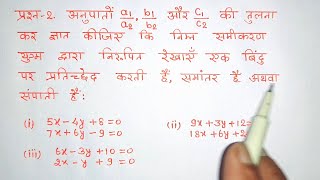 प्रश्न-2. अनुपातों a₁/a₂, b₁/b₂ और c₁/c₂ की तुलना
कर ज्ञात कीजिए कि निम्न समीकरण
युग्म द्वारा निरूपित रेखाएँ एक बिंदु
पर प्रतिच्छेद करती हैं, समांतर हैं अथवा
संपाती हैं :
(i) 5x-4y+8=0 (ii) 9x+3y+12=
7x+6y-9=0 18x+6y+2
(iii) 6x-3y+10=0
2x-y+9=0